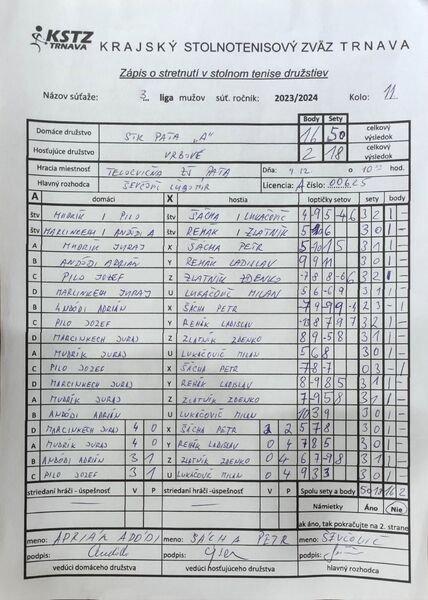 KSTZ TRNAVA KRAJSKÝ STOLNOTENISOVÝ ZVÄZ TRNAVA
Zápis o stretnutí v stolnom tenise družstiev
Názov súťaže: 3. liga mužov súť. ročník: 2023/2024 Kolo: 11
Body Sety
Domáce družstvo STK PAŤA "A" 16 50 celkový výsledok
Hosťujúce družstvo VRBOVÉ 2 18 celkový výsledok
Hracia miestnosť TELOCVIČŇA ZŠ PAŤA Dňa: 9.12. o 10 hod.
Hlavný rozhodca ĽUBOMÍR Licencia: A číslo: 00625
A domáci X hostia loptičky setov sety body
štv MUDRÍK / PILO štv ŠÁCHA / LUKAČOVIČ 4 -9 5 -4 6 3 2 1 -
štv MARCINKECH / ANDÓDI A štv REHÁK / ZLATNÍK 3 0 1 -
A MUDRÍK JURAJ X ŠÁCHA PETR 3 1 1 -
B ANDÓDI ADRIÁN Y REHÁK LADISLAV 9 9 11 3 0 1 -
C PILO JOZEF Z ZLATNÍK ZDENKO 3 2 1
D MARCINKECH JURAJ U LUKAČOVIČ MILAN 5 6 -6 9 3 1 1 -
B ANDÓDI ADRIÁN X ŠÁCHA PETR 2 3 - 1
C PILO JOZEF Y REHÁK LADISLAV 3 2 1 -
D MARCINKECH JURAJ Z ZLATNÍK ZDENKO 8 9 -5 8 3 1 1 -
A MUDRÍK JURAJ U LUKAČOVIČ MILAN 5 6 8 3 0 1 -
C PILO JOZEF X ŠÁCHA PETR 0 3 - 1
D MARCINKECH JURAJ Y REHÁK LADISLAV 8 -9 8 5 3 1 1 -
A MUDRÍK JURAJ Z ZLATNÍK ZDENKO 7 -9 5 8 3 1 1 -
B ANDÓDI ADRIÁN U LUKAČOVIČ MILAN 10 3 9 3 0 1 -
D MARCINKECH JURAJ 4 0 X ŠÁCHA PETR 2 2 5 7 8 3 0 1 -
A MUDRÍK JURAJ 4 0 Y REHÁK LADISLAV 0 4 7 8 5 3 0 1 -
B ANDÓDI ADRIÁN 3 1 Z ZLATNÍK ZDENKO 0 4 6 7 -9 8 3 1 1 -
C PILO JOZEF 3 1 U LUKAČOVIČ MILAN 0 4 9 3 3 3 0 1 -
striedaní hráči - úspešnosť V P striedaní hráči - úspešnosť V P Spolu sety a body 50 18 16 2
Námietky Áno Nie
ak áno, tak pokračujte na 2. strane
meno: ADRIÁN ANDÓDI meno: ŠÁCHA PETR meno:
podpis: podpis: podpis:
vedúci domáceho družstva vedúci hosťujúceho družstva hlavný rozhodca